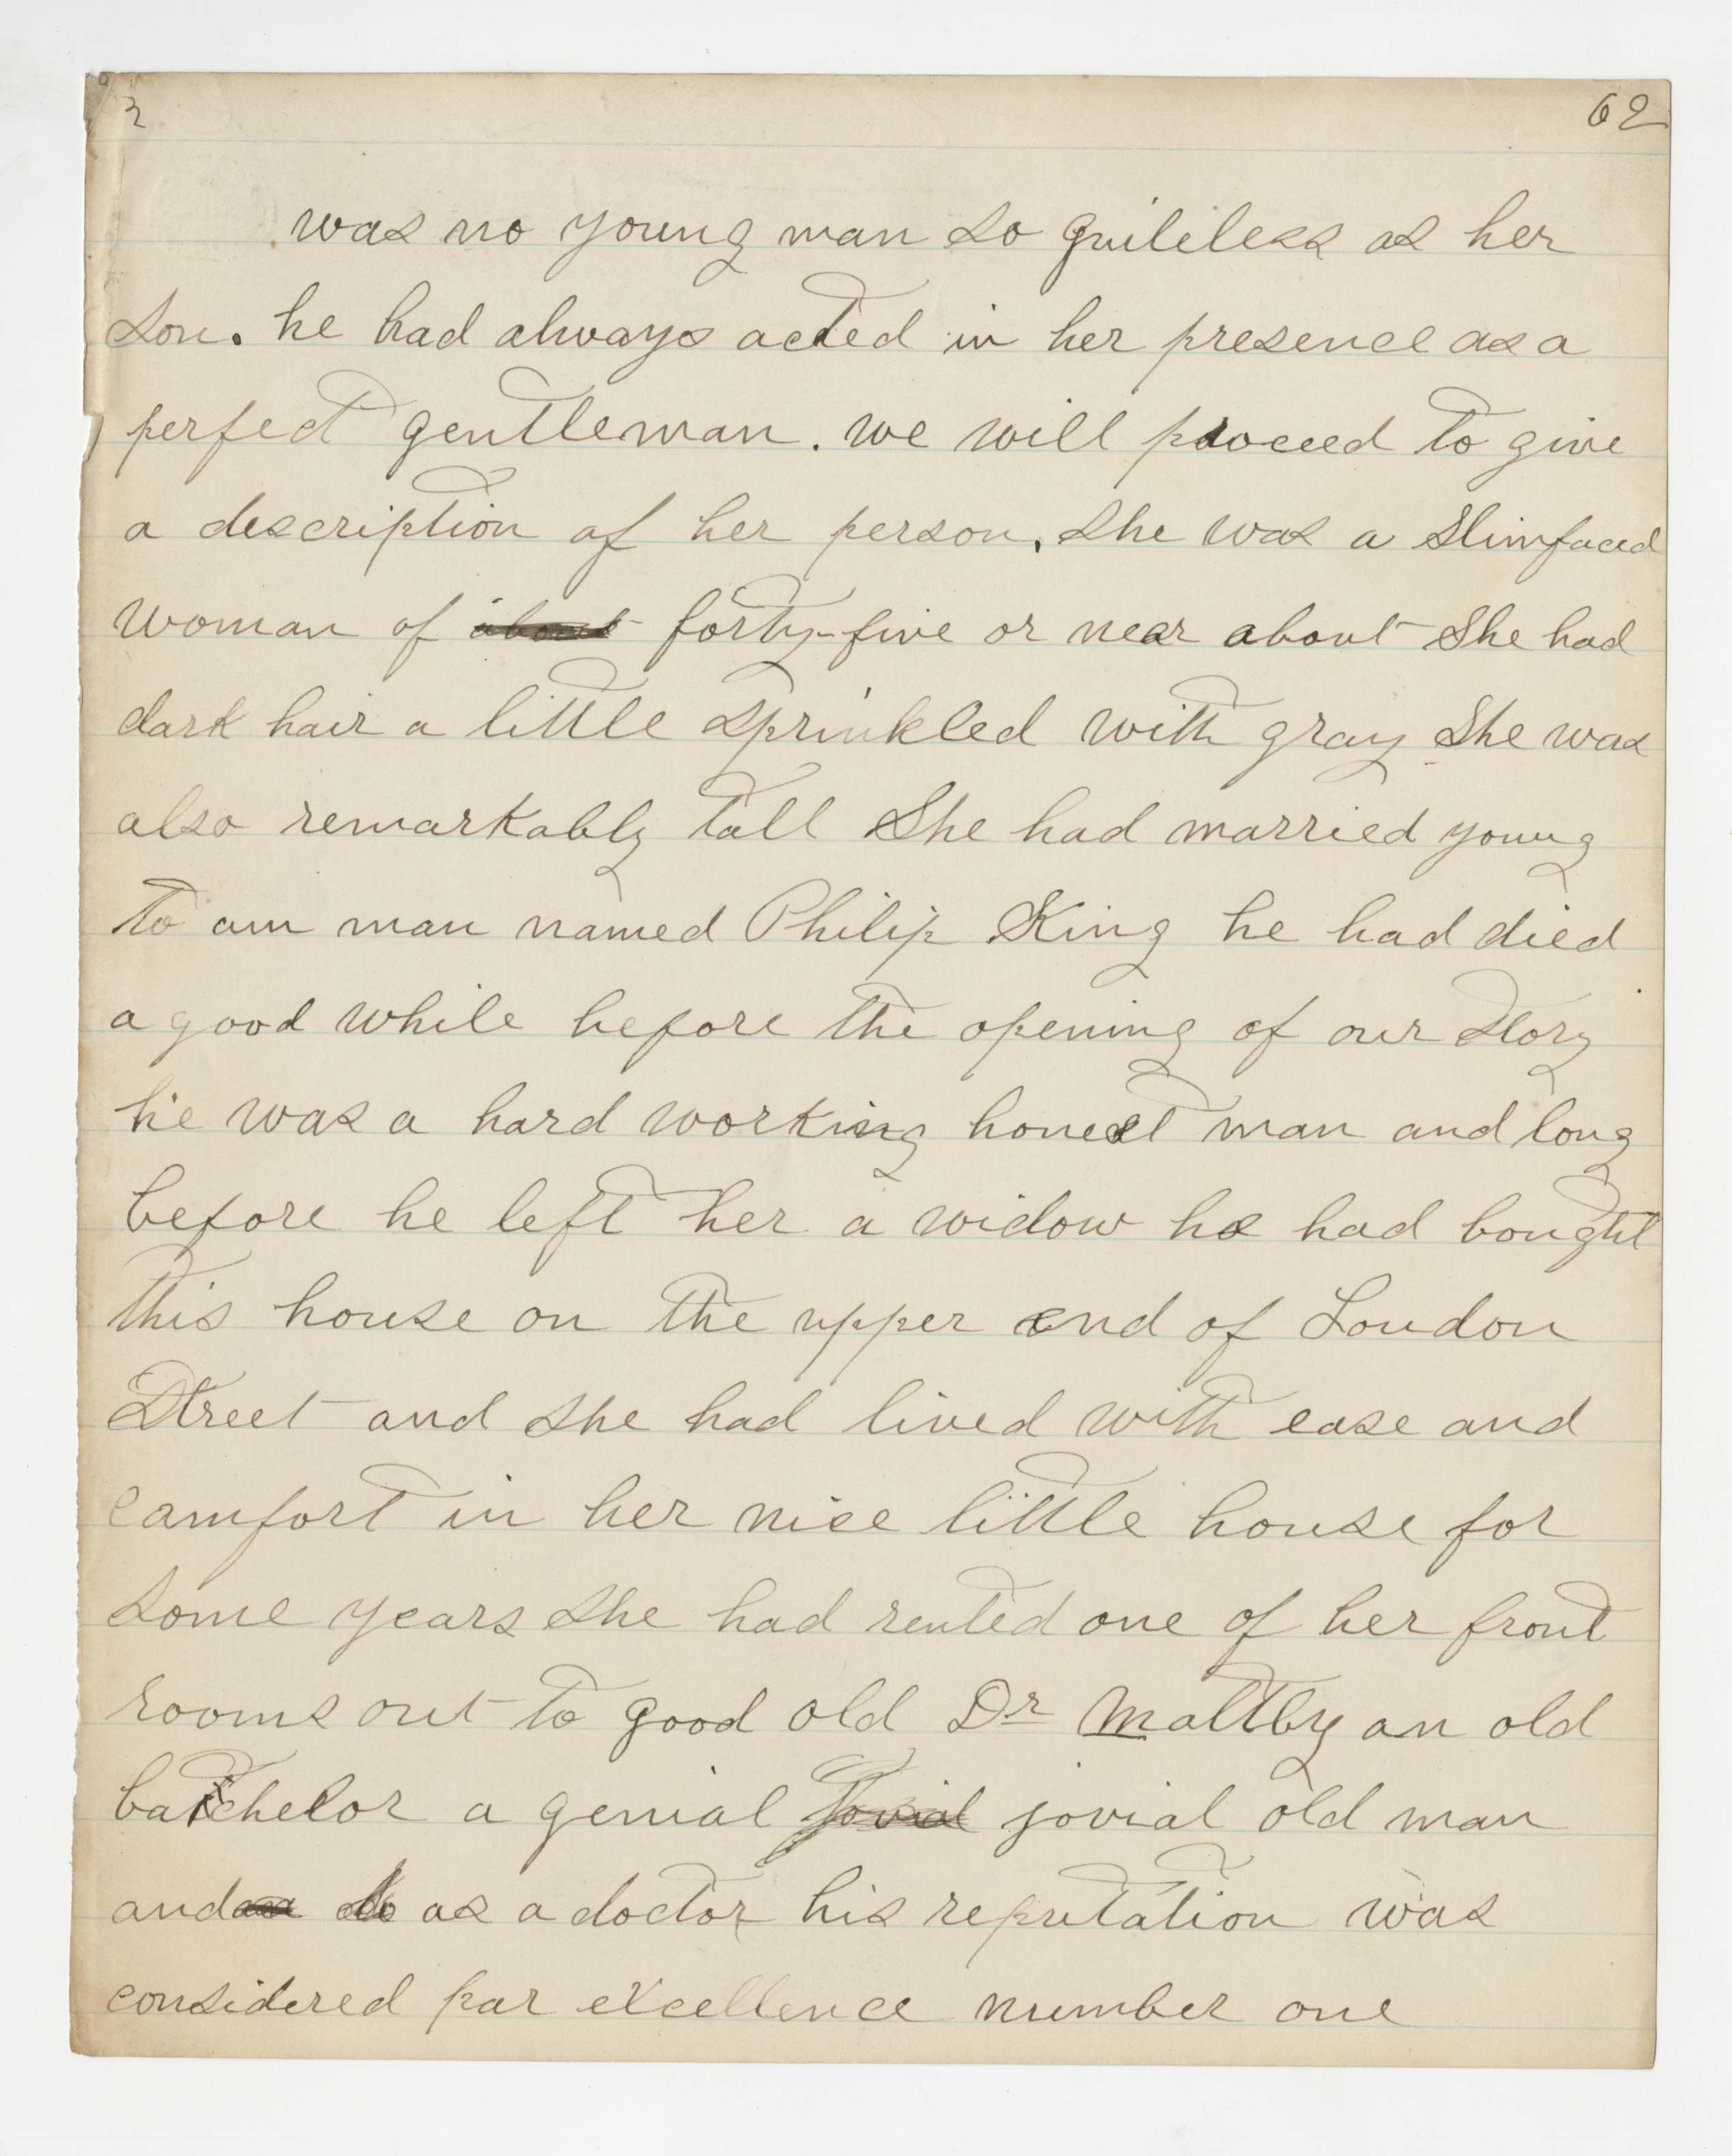 2 62
was no young man so guileless as her
son. he had always acted in her presence as a
perfect gentleman. we will proceed to give
a description of her person. She was a Slimfaced
woman of about forty-five or near about She had
dark hair a little sprinkled with gray She was
also remarkably tall She had married young
to am man named Philip King he had died
a good while before the opening of our story
he was a hard working honest man and long
before he left her a widow he had bought
this house on the upper end of London
Street and she had lived with ease and
comfort in her nice little house for
some years she had rented one of her front
rooms out to good old Dr Maltby an old
batchelor a genial jovial jovial old man
and as a doctor his reputation was
considered par excellence number one